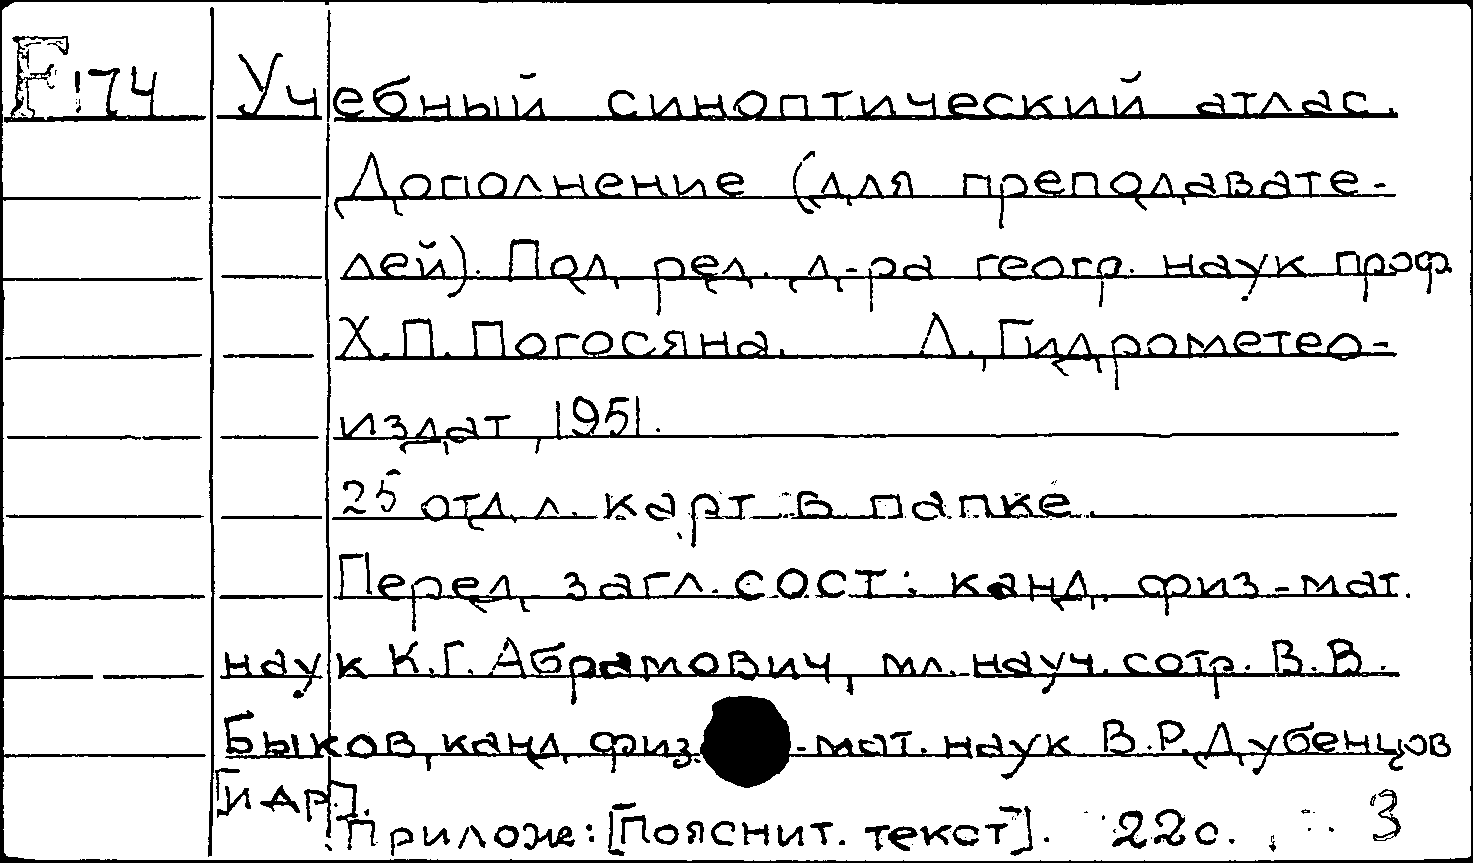 F174 Учебный синоптический атлас.
Дополнение (для преподавате-
лей). Под ред. д-ра геогр. наук проф
Х.П. Погосяна. Л., Гидрометео-
издат, 1951.
25 отд. л. карт в папке.
Перед загл. сост.: канд. физ-мат.
наук К.Г. Абрамович, мл. науч. сотр. В.В.
Быков, канд. физ.-мат. наук В.Р. Дубенцов
[и др.].
Прилож: [Пояснит. текст]. 22 с. 3